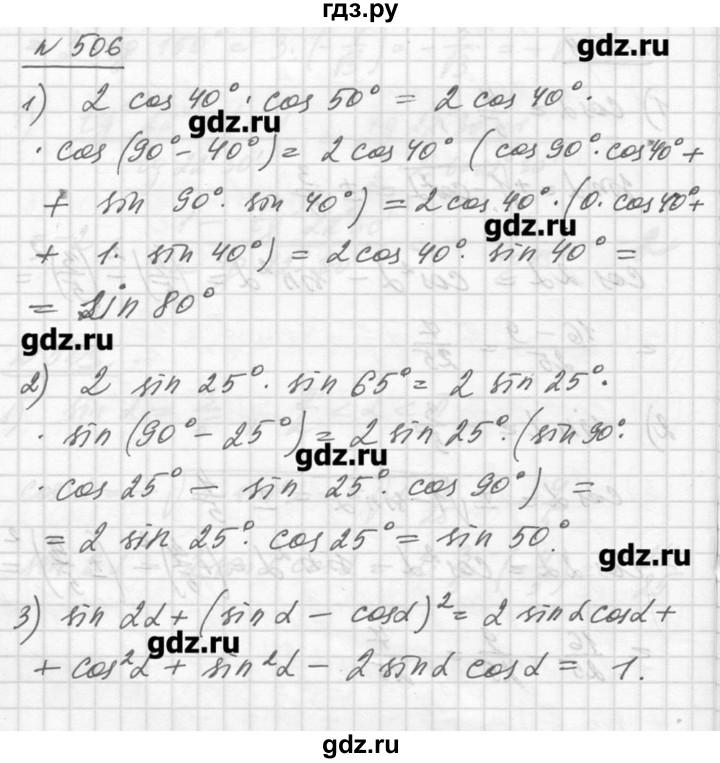 гдз.ру
№ 506
gdz.ru
1) 2 cos 40° · cos 50° = 2 cos 40° ·
gdz.ru
· cos (90° - 40°) = 2 cos 40° (cos 90° · cos 40° +
+ sin 90° · sin 40°) = 2 cos 40° · (0 · cos 40° +
gdz.ru
+ 1 · sin 40°) = 2 cos 40° · sin 40° =
= sin 80°
gdz.ru
2) 2 sin 25° · sin 65° = 2 sin 25° ·
· sin (90° - 25°) = 2 sin 25° · (sin 90° ·
gdz.ru
· cos 25° - sin 25° · cos 90°) =
= 2 sin 25° · cos 25° = sin 50°.
gdz.ru
3) sin 2α + (sin α - cos α)² = 2 sin α cos α +
gdz.ru
+ cos²α + sin²α - 2 sin α cos α = 1.
gdz.ru